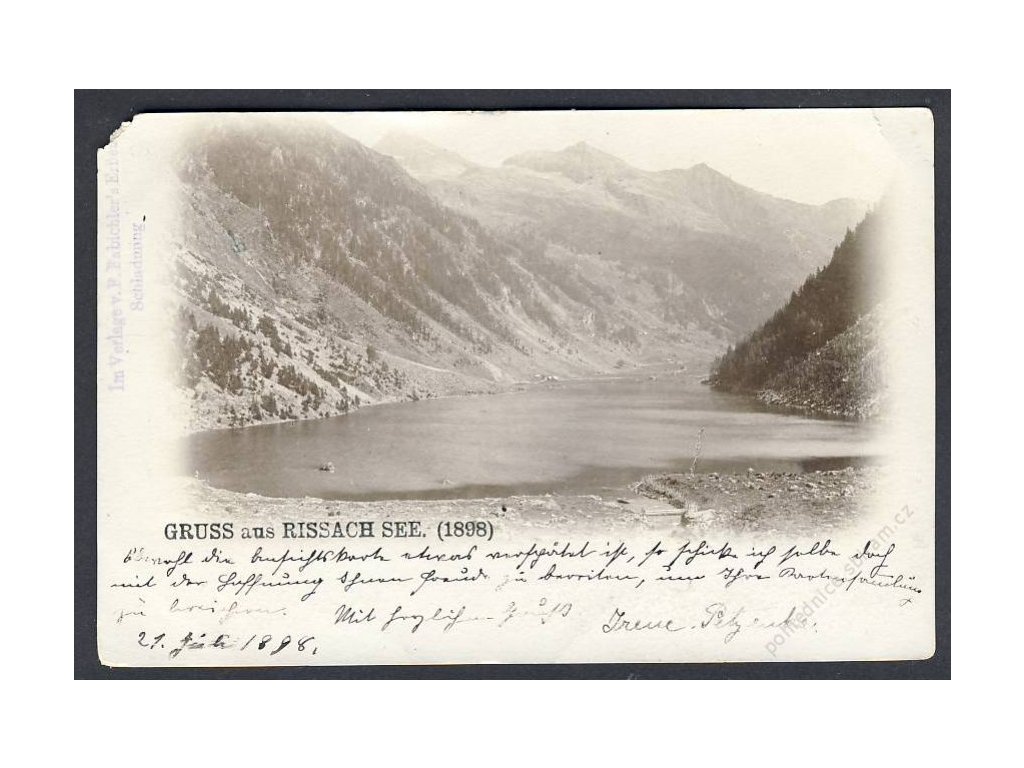 Im Verlage v. F. Babichler's E.
Schladming
GRUSS aus RISSACH SEE. (1898)
Obwohl die Ansichtskarte etwas verspätet ist, so schicke ich selbe doch
mit der Hoffnung Ihnen Freude zu bereiten, um Ihre Kartensammlung
zu bereichern. Mit herzlichen Gruß Irene
21. Juli 1898.
pohlednice-sberatelstvi.cz